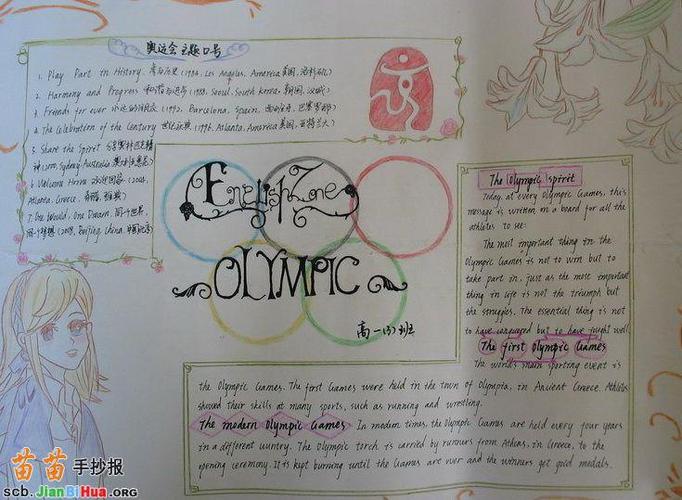 奥运会主题口号
1. Play Part in History. 参与历史 (1984, Los Angeles, America 美国, 洛杉矶)
2. Harmony and Progress 和谐与进步 (1988, Seoul, South korea, 韩国, 汉城)
3. Friends for ever 永远的朋友 (1992, Barcelona, Spain, 西班牙, 巴塞罗那)
4. The Celebration of the Century 世纪庆典 (1996, Atlanta, America 美国, 亚特兰大)
5. Share the Spirit 分享奥林匹克精
神 (2000, Sydney, Australia 澳大利亚悉尼)
6. Welcome Home 欢迎回家 (2004,
Atlanta, Greece, 希腊, 雅典)
7. One World, One Dream, 同一个世界,
同一个梦想 (2008, Beijing, China, 中国北京)
English Zone
OLYMPIC
高一(3)班
The Olympic spirit
Today, at every Olympic Games, this
message is written on a board for all the
athletes to see:
The most important thing in the
Olympic Games is not to win but to
take part in, just as the most important
thing in life is not the triumph but
the struggles. The essential thing is not
to have conquered but to have fought well.
The first Olympic Games
The world's main sporting event is
the Olympic Games. The first Games were held in the town of Olympia, in Ancient Greece. Athletes
showed their skills at many sports, such as running and wrestling.
The modern Olympic Games In modern times, the Olympic Games are held every four years
in a different country. The Olympic torch is carried by runners from Athens, in Greece, to the
opening ceremony. It is kept burning until the Games are over and the winners get gold medals.
苗苗手抄报
scb.JianBiHua.ORG